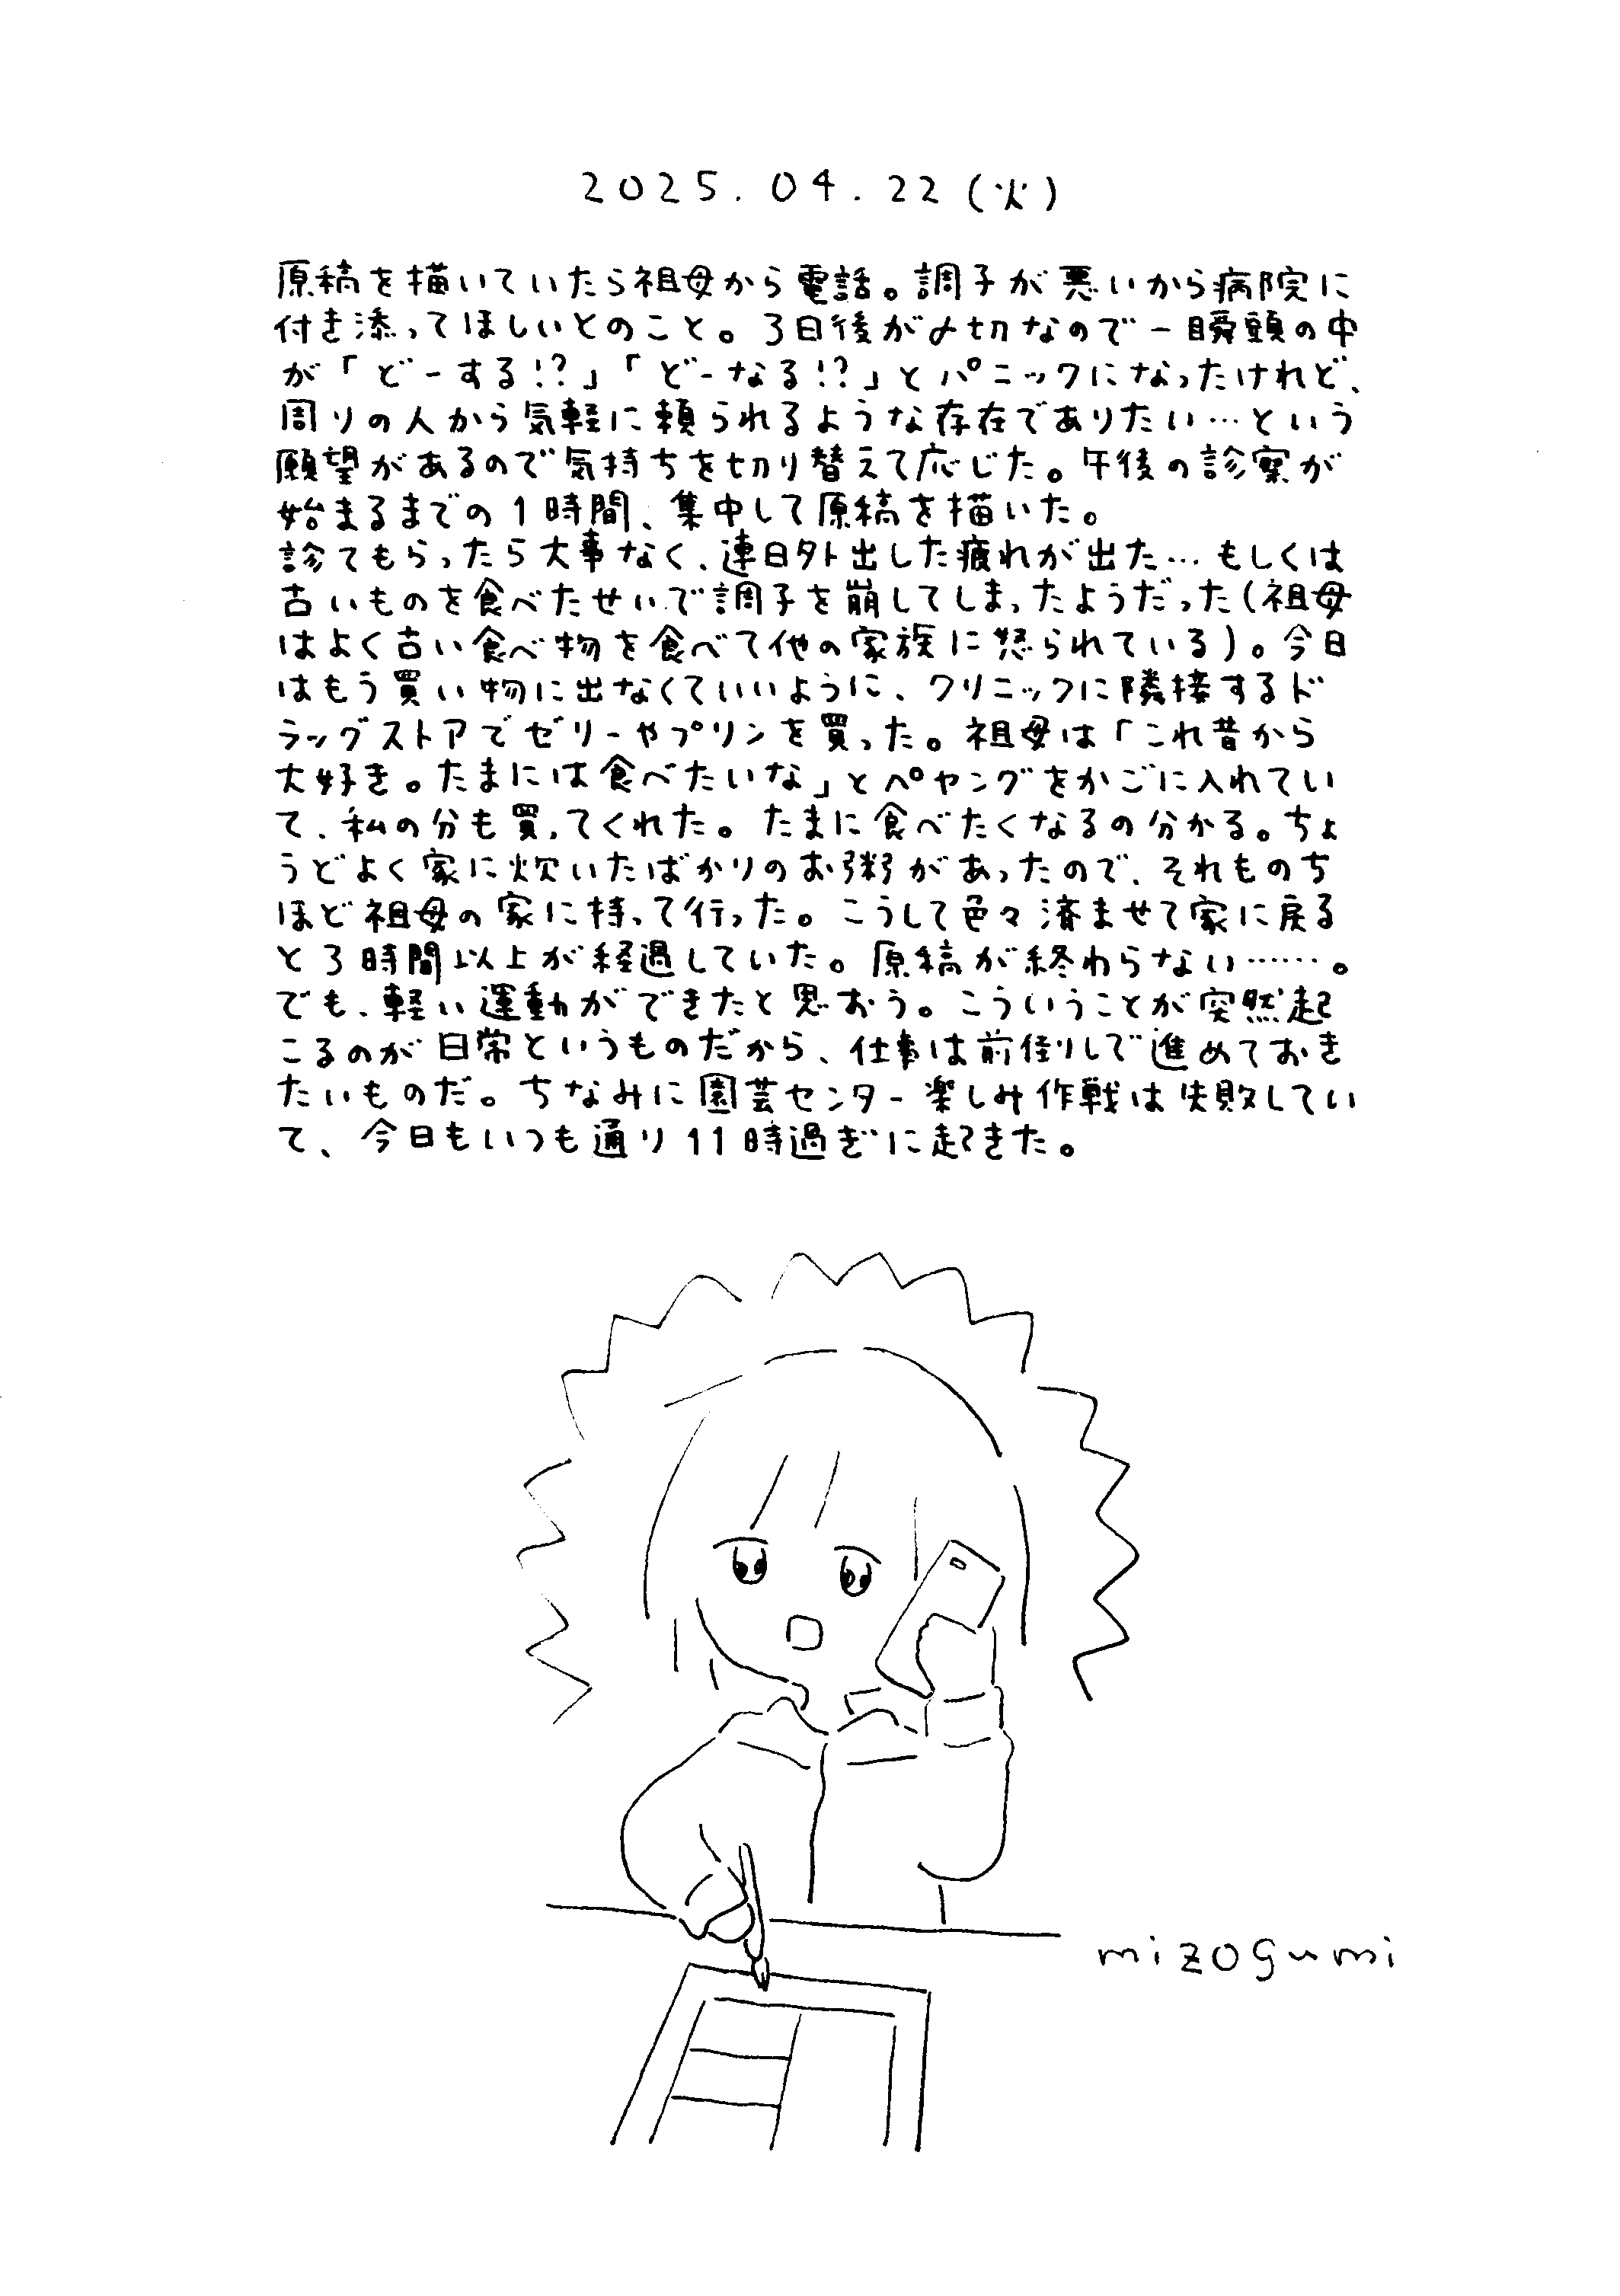 2025.04.22(火)
原稿を描いていたら祖母から電話。調子が悪いから病院に
付き添ってほしいとのこと。3日後が〆切なので一瞬頭の中
が「どーする!?」「どーなる!?」とパニックになったけれど、
周りの人から気軽に頼られるような存在でありたい…という
願望があるので気持ちを切り替えて応じた。午後の診察が
始まるまでの1時間、集中して原稿を描いた。
診てもらったら大事なく、連日外出した疲れが出た…もしくは
古いものを食べたせいで調子を崩してしまったようだった(祖母
はよく古い食べ物を食べて他の家族に怒られている)。今日
はもう買い物に出なくていいように、クリニックに隣接するド
ラッグストアでゼリーやプリンを買った。祖母は「これ昔から
大好き。たまには食べたいな」とペヤングをかごに入れてい
て、私の分も買ってくれた。たまに食べたくなるの分かる。ちょ
うどよく家に炊いたばかりのお粥があったので、それものち
ほど祖母の家に持って行った。こうして色々済ませて家に戻る
と3時間以上が経過していた。原稿が終わらない……。
でも、軽い運動ができたと思おう。こういうことが突然起
こるのが日常というものだから、仕事は前倒しで進めておき
たいものだ。ちなみに園芸センター楽しみ作戦は失敗してい
て、今日もいつも通り11時過ぎに起きた。
mizogumi